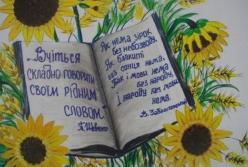 "Вчіться
складно говорити
своїм рідним
словом"
Т. Шевченко
Як нема зірок
без небозводу,
Як блакиті
без сонця нема,
Так і мови нема
без народу,
І народу без мови
нема.